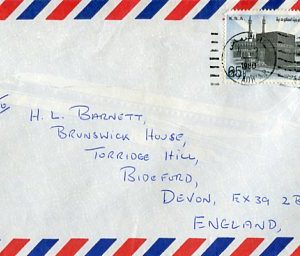 K.S.A.
65
1980
H. L. BARNETT,
BRUNSWICK HOUSE,
TORRIDGE HILL,
BIDEFORD,
DEVON, EX39 2B
ENGLAND,